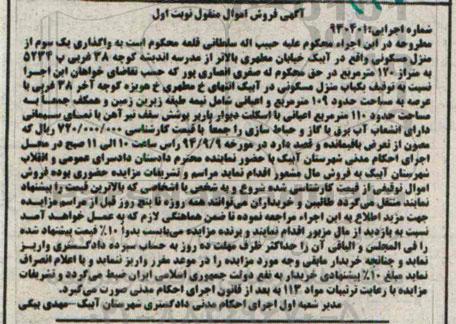 آگهی فروش اموال منقول نوبت اول
شماره اجرایی: ۹۳۰۲۰۱
مطروحه در این اجراء محکوم علیه حبیب اله سلطانی قلعه محکوم است به واگذاری یک سوم از
منزل مسکونی واقع در آبیک خیابان مطهری بالاتر از مدرسه اندیشه کوچه ۳۸ غربی پ ۵۲۳۴
به متراژ ۱۲۰ مترمربع در حق محکوم له صغری انصاری پور که حسب تقاضای خواهان این اجرا
نسبت به توقیف یکباب منزل مسکونی در آبیک انتهای خ مطهری خ هویزه کوچه آخر ۳۸ غربی با
عرصه به مساحت حدود ۱۰۹ مترمربع و اعیانی شامل نیمه طبقه زیرین زمین و همکف جمعاً به
مساحت حدود ۱۱۰ مترمربع اعیانی با اسکلت دیوار باربر پوشش سقف تیر آهن با نمای سیمانی
دارای انشعاب آب برق با گاز و حیاط سازی را جمعاً با قیمت کارشناسی ۷۲۰/۰۰۰/۰۰۰ ریال که
مصون از تعرض باقیمانده و قصد دارد در مورخه ۹۴/۹/۹ راس ساعت ۱۰ الی ۱۱ صبح در محل
اجرای احکام مدنی شهرستان آبیک با حضور نماینده محترم دادستان دادسرای عمومی و انقلاب
شهرستان آبیک به فروش مال مشعور اقدام نماید مراسم و تشریفات مزایده حضوری بوده فروش
اموال توقیفی از قیمت کارشناسی شده شروع و به شخص یا اشخاصی که بالاترین قیمت را پیشنهاد
نمایند منتقل می‌گردد طالبین و خریداران می‌توانند همه روزه تا پنج روز قبل از مراسم مزایده
جهت مزید اطلاع به این اجراء مراجعه نموده تا ضمن هماهنگی لازم که به عمل خواهد آمد
نسبت به بازدید از مال مزبور اقدام نمایند و برنده مزایده می‌بایست بدواً ۱۰٪ قیمت پیشنهاد شده
را فی المجلس و الباقی آن را حداکثر ظرف مهلت ده روز به حساب سپرده دادگستری واریز
نماید و چنانچه خریدار مابقی وجه مورد مزایده را در موعد مقرر واریز ننماید و یا اعلام انصراف
نماید مبلغ ۱۰٪ پیشنهادی خریدار به نفع دولت جمهوری اسلامی ایران ضبط می‌گردد و تشریفات
مزایده با رعایت ترتیبات مواد ۱۱۳ به بعد از قانون اجرای احکام مدنی صورت می‌گیرد.
مدیر شعبه اول اجرای احکام مدنی دادگستری شهرستان آبیک-مهدی بیگی